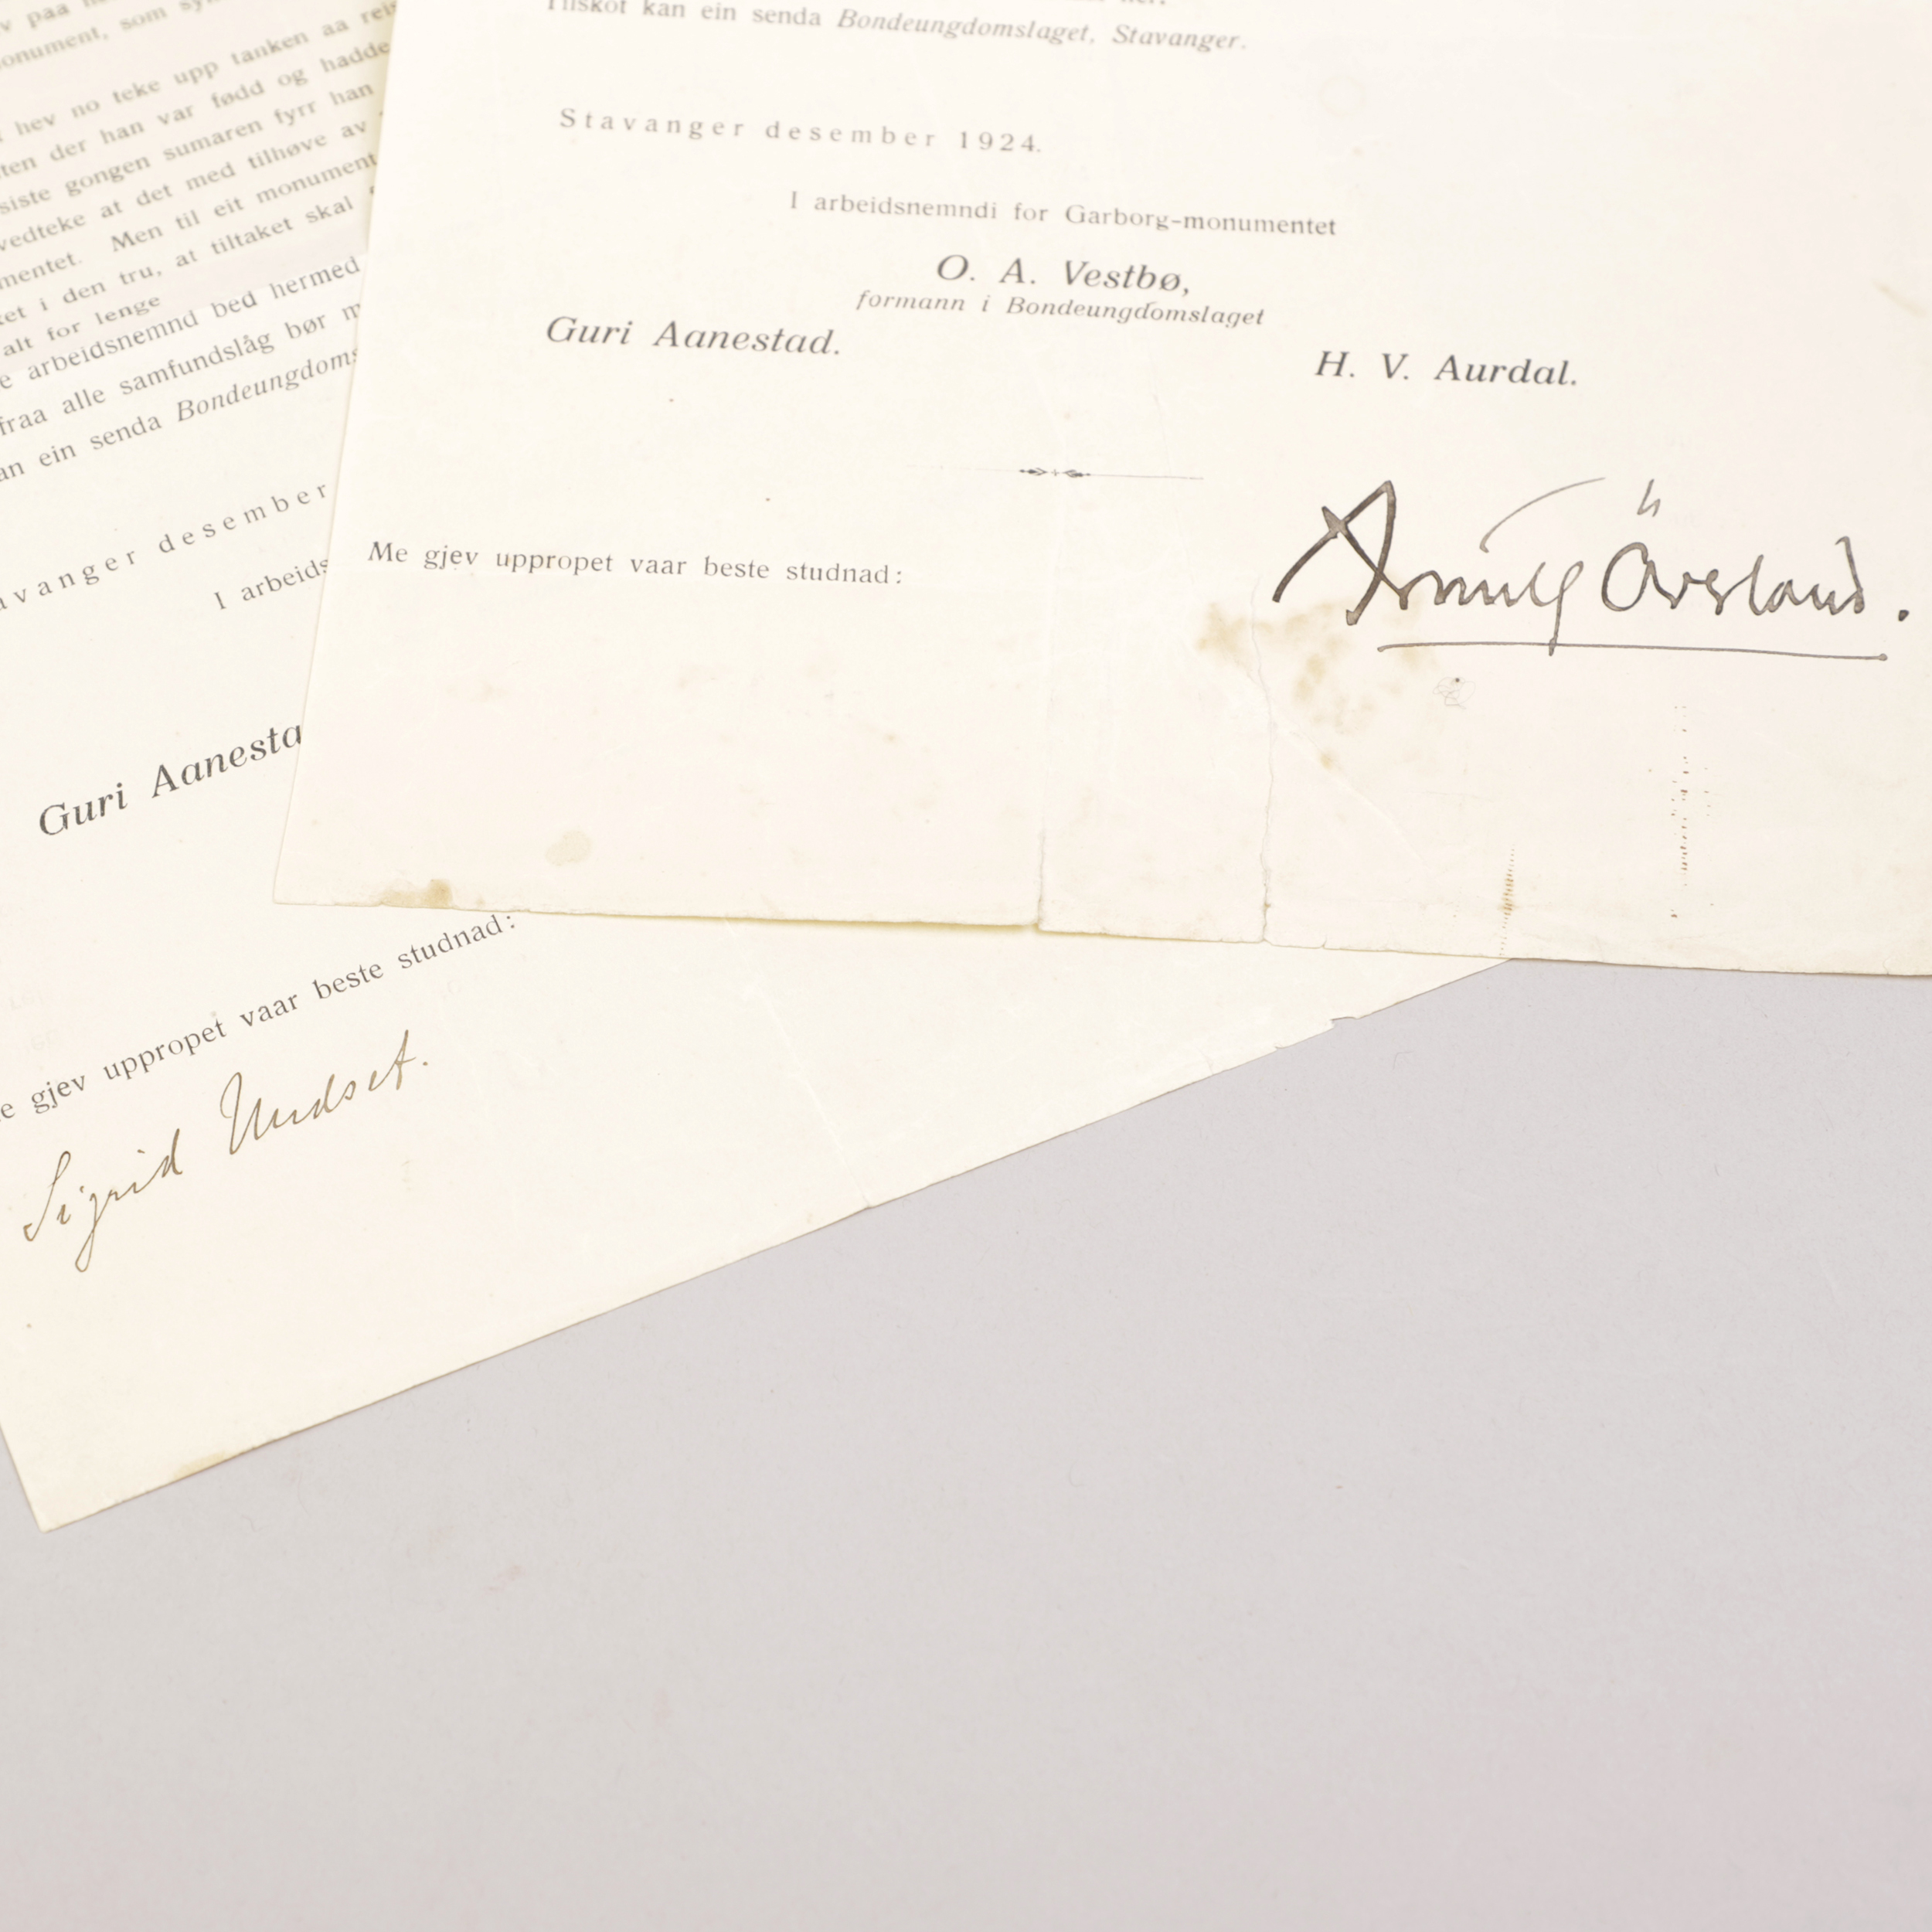 v paa
onument, som
hev no teke upp tanken aa reis
ten der han var fødd og hadde
siste gongen sumaren fyrr han
vedteke at det med tilhøve av
mentet. Men til eit monument
et i den tru, at tiltaket skal
alt for lenge
e arbeidsnemnd bed hermed
fraa alle samfundslåg bør m
an ein senda Bondeungdoms
avanger desember
I arbeids
Guri Aanesta
e gjev uppropet vaar beste studnad:
Sigrid Undset.
Tilskot kan ein senda Bondeungdomslaget, Stavanger.
Stavanger desember 1924.
I arbeidsnemndi for Garborg-monumentet
O. A. Vestbø,
formann i Bondeungdomslaget
Guri Aanestad.
H. V. Aurdal.
Me gjev uppropet vaar beste studnad:
Arnulf Överland.